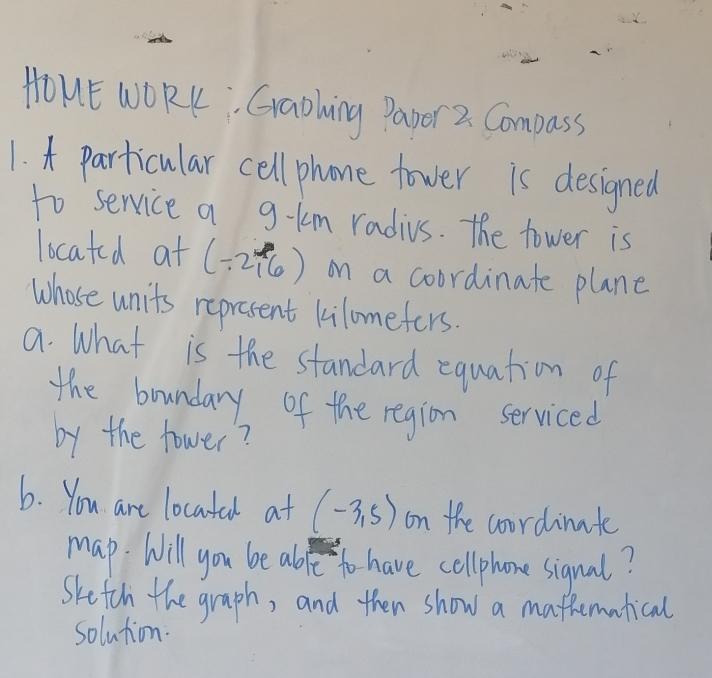 HOMEWORK: Graphing Paper & Compass
1. A particular cell phone tower is designed
to service a 9-km radius. The tower is
located at (-2,6) on a coordinate plane
whose units represent kilometers.
a. What is the standard equation of
the boundary of the region serviced
by the tower?
b. You are located at (-3,5) on the coordinate
map. Will you be able to have cellphone signal?
Sketch the graph, and then show a mathematical
solution.